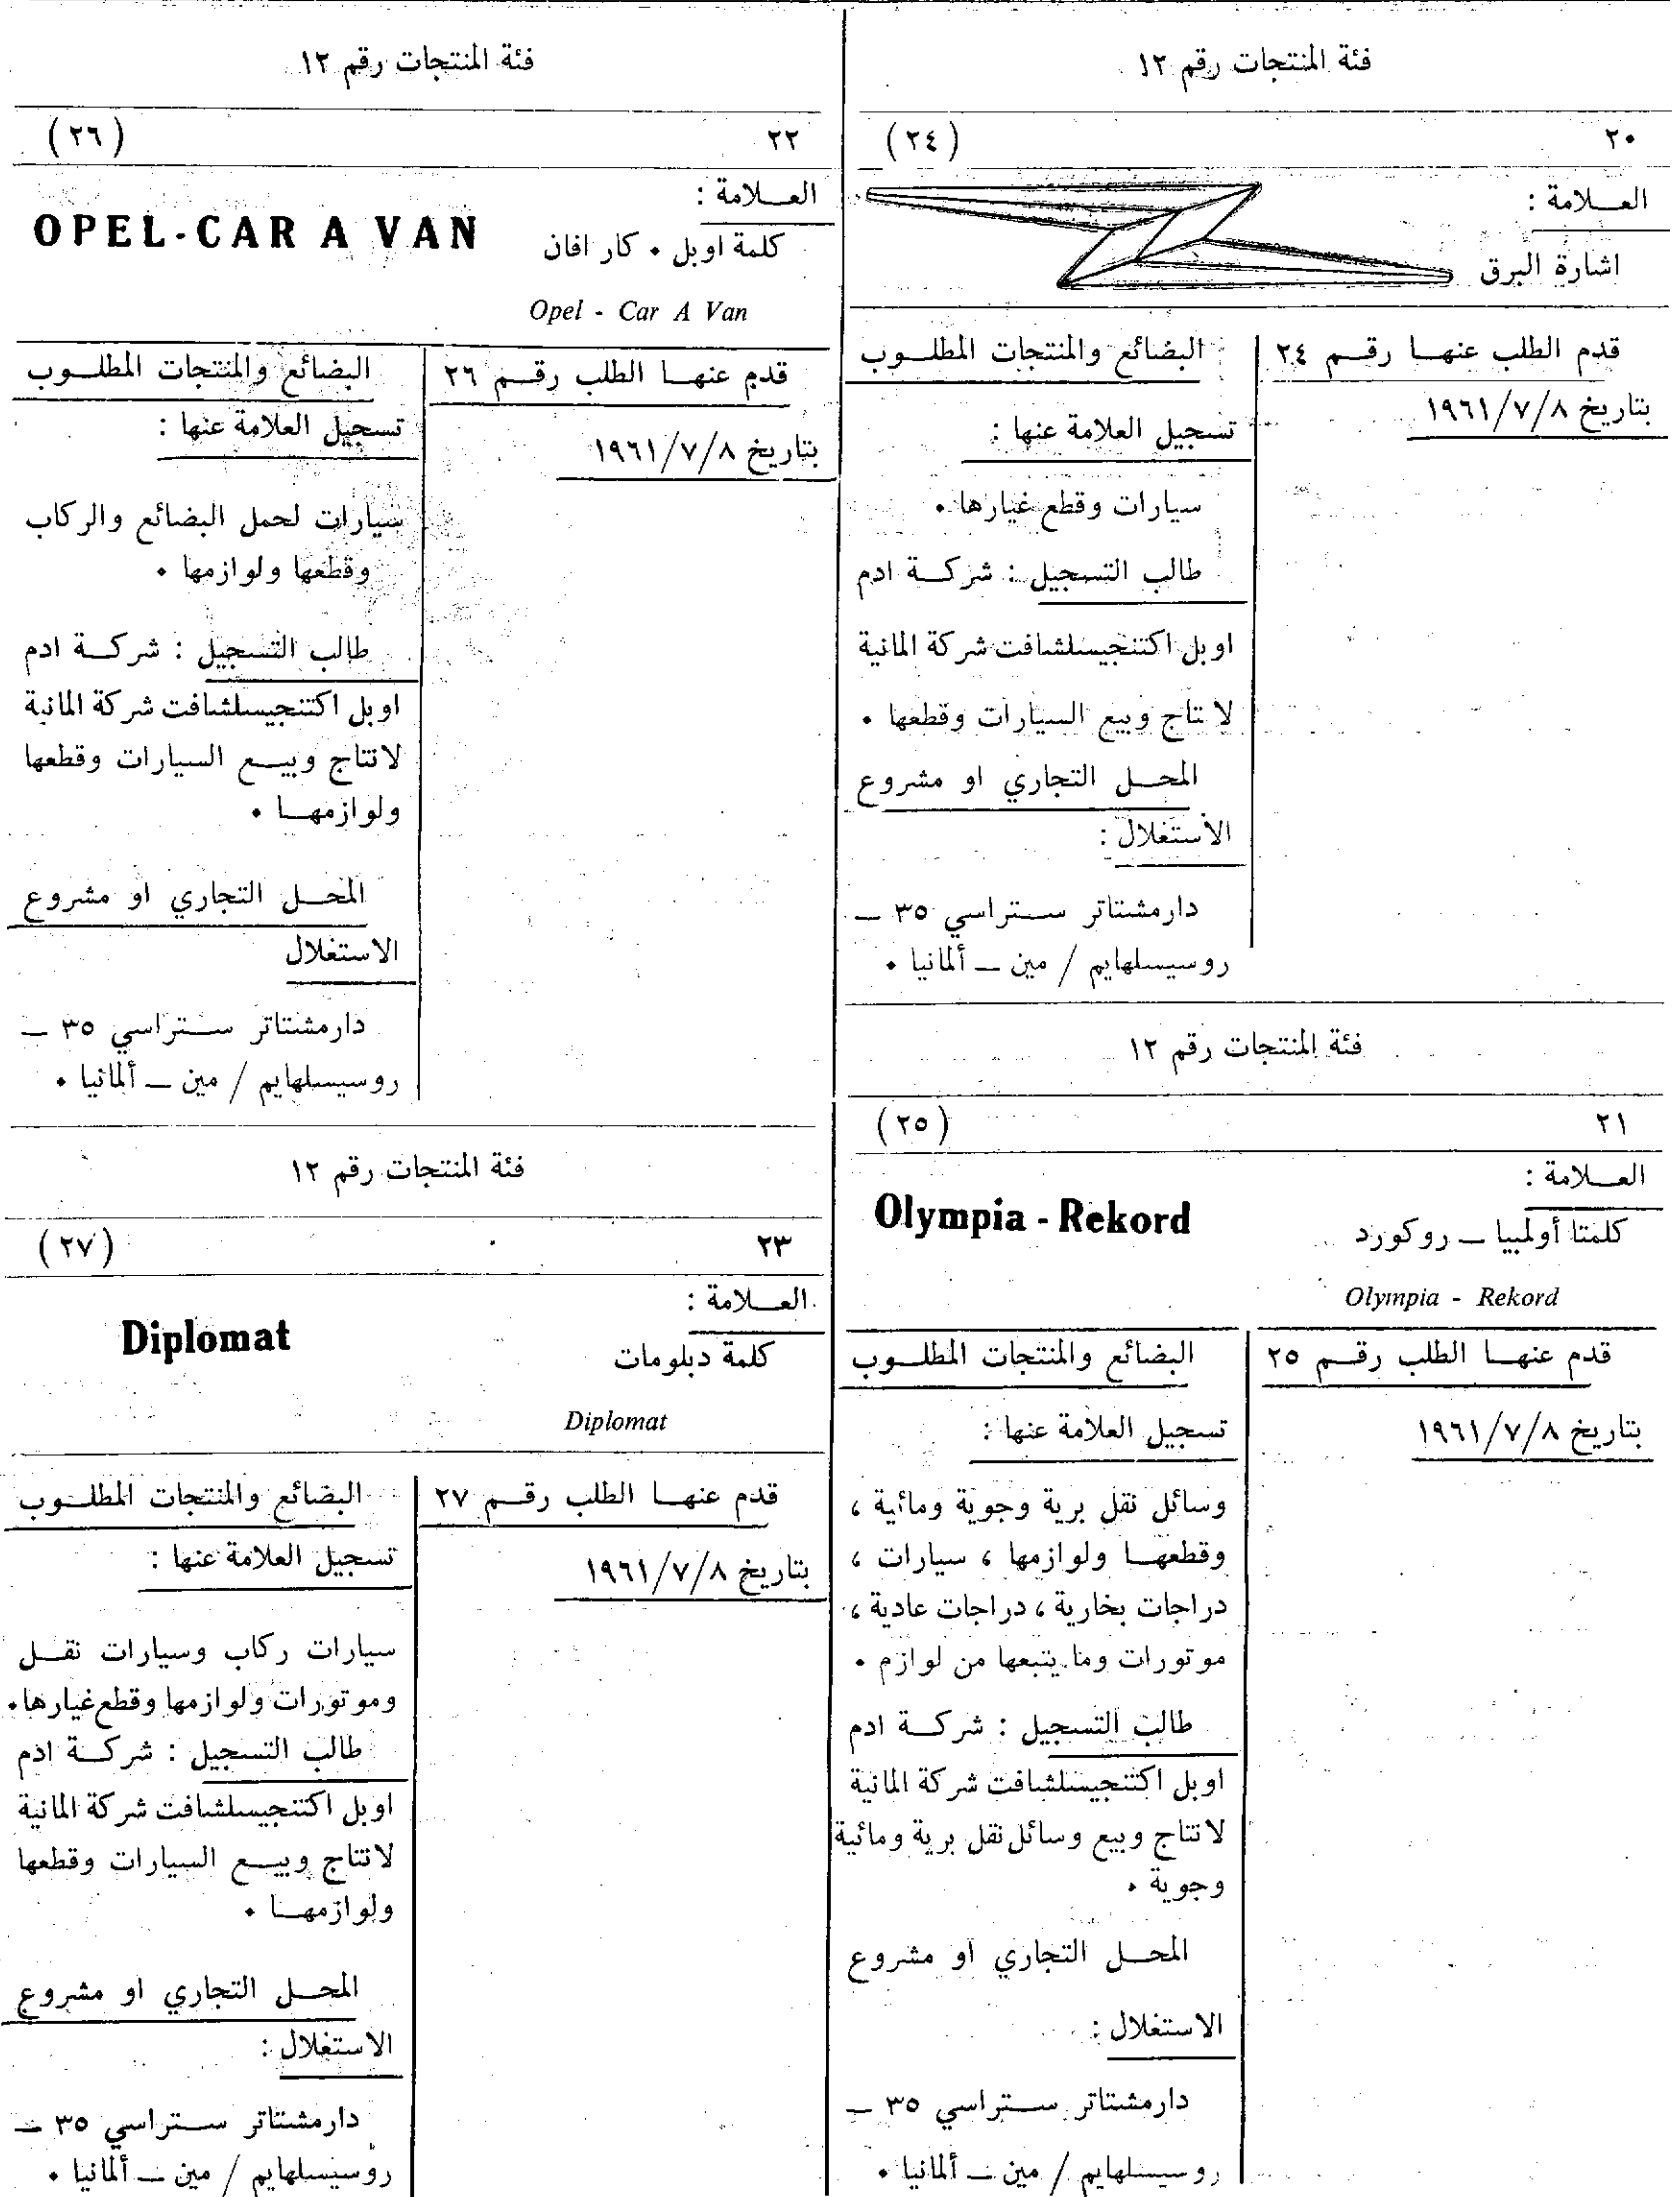 فئة المنتجات رقم ١٢
٢٠ (٢٤)
العـــلامة :
اشارة البرق
قدم الطلب عنهـــا رقـــم ٢٤
بتاريخ ١٩٦١/٧/٨
البضائع والمنتجات المطلـــوب
تسجيل العلامة عنها :
سيارات وقطع غيارها ٠
طالب التسجيل : شركـــة ادم
اوبل اكتنجيسلشافت شركة المانية
لانتاج وبيع السيارات وقطعها ٠
المحـــل التجاري او مشروع
الاستغلال :
دارمشتاتر ستراسي ٣٥ —
روسيسلهايم / مين — ألمانيا ٠
فئة المنتجات رقم ١٢
٢١ (٢٥)
العـــلامة :
كلمتا أولمبيا — روكورد
Olympia - Rekord
Olympia - Rekord
قدم عنهـــا الطلب رقـــم ٢٥
بتاريخ ١٩٦١/٧/٨
البضائع والمنتجات المطلـــوب
تسجيل العلامة عنها :
وسائل نقل برية وجوية ومائية ،
وقطعهـــا ولوازمها ، سيارات ،
دراجات بخارية ، دراجات عادية ،
موتورات وما يتبعها من لوازم ٠
طالب التسجيل : شركـــة ادم
اوبل اكتنجيسلشافت شركة المانية
لانتاج وبيع وسائل نقل برية ومائية
وجوية ٠
المحـــل التجاري او مشروع
الاستغلال :
دارمشتاتر ستراسي ٣٥ —
روسيسلهايم / مين — ألمانيا ٠
فئة المنتجات رقم ١٢
٢٢ (٢٦)
العـــلامة :
OPEL-CAR A VAN
كلمة اوبل ٠ كار افان
Opel - Car A Van
قدم عنهـــا الطلب رقـــم ٢٦
بتاريخ ١٩٦١/٧/٨
البضائع والمنتجات المطلـــوب
تسجيل العلامة عنها :
سيارات لحمل البضائع والركاب
وقطعها ولوازمها ٠
طالب التسجيل : شركـــة ادم
اوبل اكتنجيسلشافت شركة المانية
لانتاج وبيـــع السيارات وقطعها
ولوازمهـــا ٠
المحـــل التجاري او مشروع
الاستغلال
دارمشتاتر ستراسي ٣٥ —
روسيسلهايم / مين — ألمانيا ٠
فئة المنتجات رقم ١٢
٢٣ (٢٧)
العـــلامة :
Diplomat
كلمة دبلومات
Diplomat
قدم عنهـــا الطلب رقـــم ٢٧
بتاريخ ١٩٦١/٧/٨
البضائع والمنتجات المطلـــوب
تسجيل العلامة عنها :
سيارات ركاب وسيارات نقـــل
وموتورات ولوازمها وقطع غيارها ٠
طالب التسجيل : شركـــة ادم
اوبل اكتنجيسلشافت شركة المانية
لانتاج وبيـــع السيارات وقطعها
ولوازمهـــا ٠
المحـــل التجاري او مشروع
الاستغلال :
دارمشتاتر ستراسي ٣٥ —
روسيسلهايم / مين — ألمانيا ٠